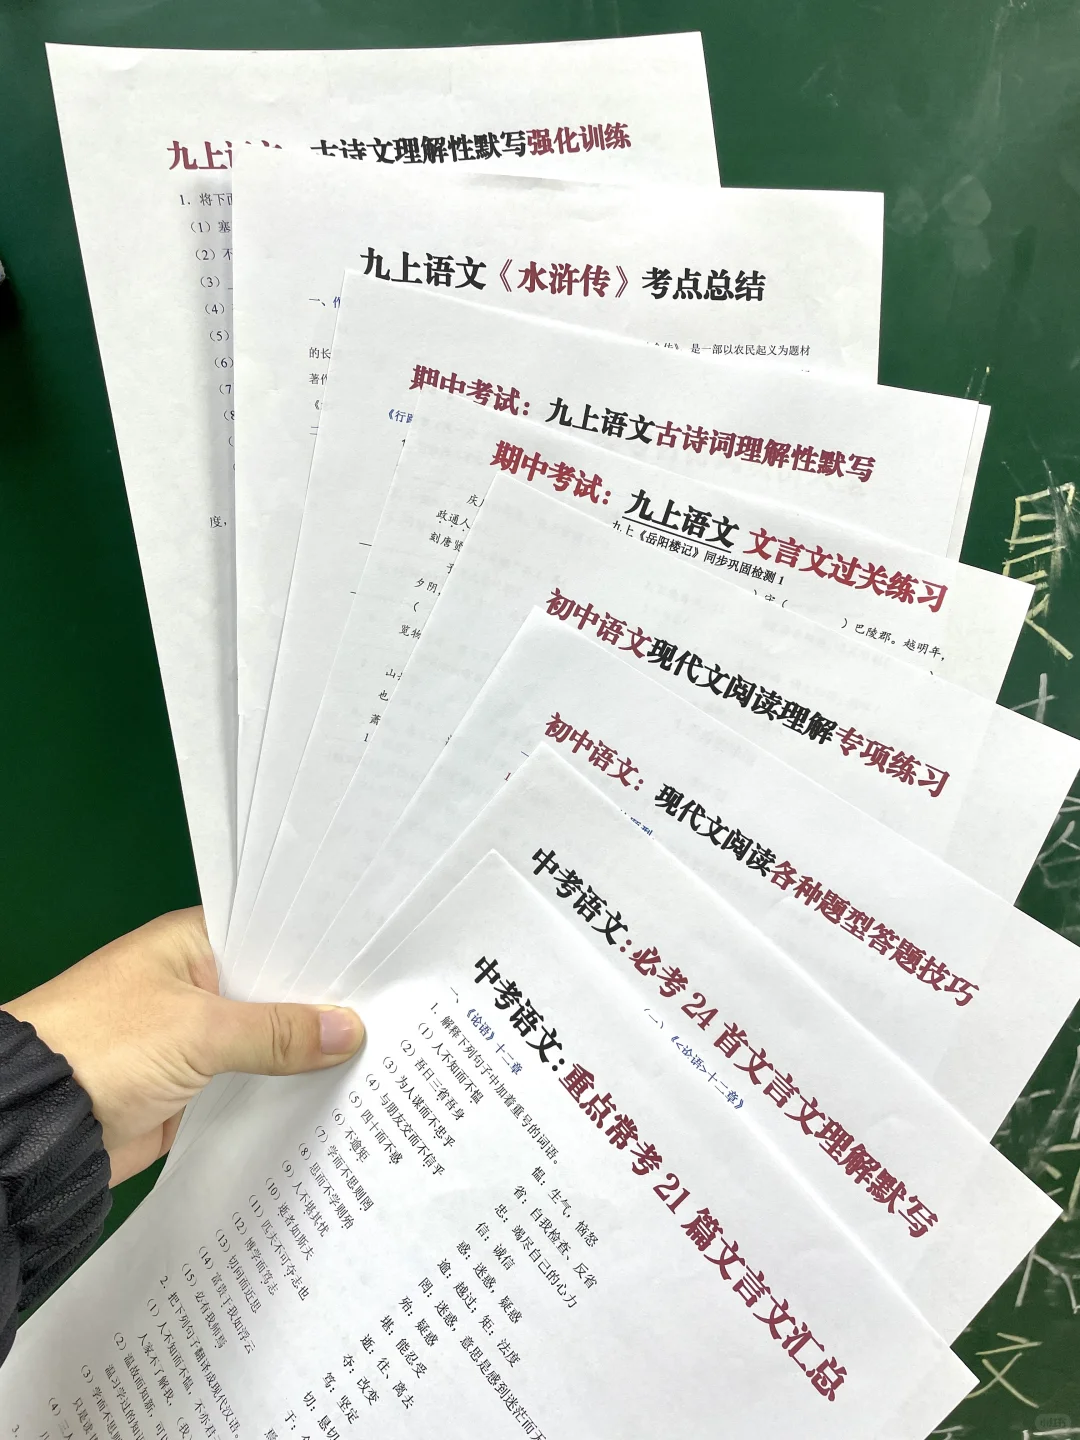 九上
古诗文理解性默写强化训练
1. 将下
(1) 塞
(2) 不
(3)
(4)
(5)
(6)
(7
度，
九上语文《水浒传》考点总结
一、作
是一部以农民起义为题材
的长
著作
期中考试：九上语文古诗词理解性默写
《行路
期中考试：九上语文 文言文过关练习
九上《岳阳楼记》同步巩固检测 1
）守（
）巴陵郡。越明年，
政通人
刻唐贤
夕阴，
（
览物
山
也
萧
1
初中语文现代文阅读理解专项练习
初中语文：现代文阅读各种题型答题技巧
中考语文：必考 24 首文言文理解默写
（一）《<论语>十二章》
中考语文：重点常考 21 篇文言文汇总
一、《论语》十二章
1. 解释下列句子中加着重号的词语。
(1) 人不知而不愠 愠：生气，恼怒
(2) 吾日三省吾身 省：自我检查、反省
(3) 为人谋而不忠乎 忠：竭尽自己的心力
(4) 与朋友交而不信乎 信：诚信
(5) 四十而不惑 惑：迷惑，疑惑
(6) 不逾矩 逾：越过；矩：法度
(7) 学而不思则罔 罔：迷惑，意思是感到迷茫而无
(8) 思而不学则殆 殆：疑惑
(9) 人不堪其忧 堪：能忍受
(10) 逝者如斯夫 逝：往、离去
(11) 匹夫不可夺志也 夺：改变
(12) 博学而笃志 笃：坚定
(13) 切问而近思 切：恳切
(14) 富贵于我如浮云 于：
(15) 必有我师焉
2. 把下列句子翻译成现代汉语。
(1) 人不知而不愠，不亦君
人家不了解我，（我）
(2) 温故而知新，可
温习学过的知识
(3) 学而不思则
只是读
(4) 三人
3.